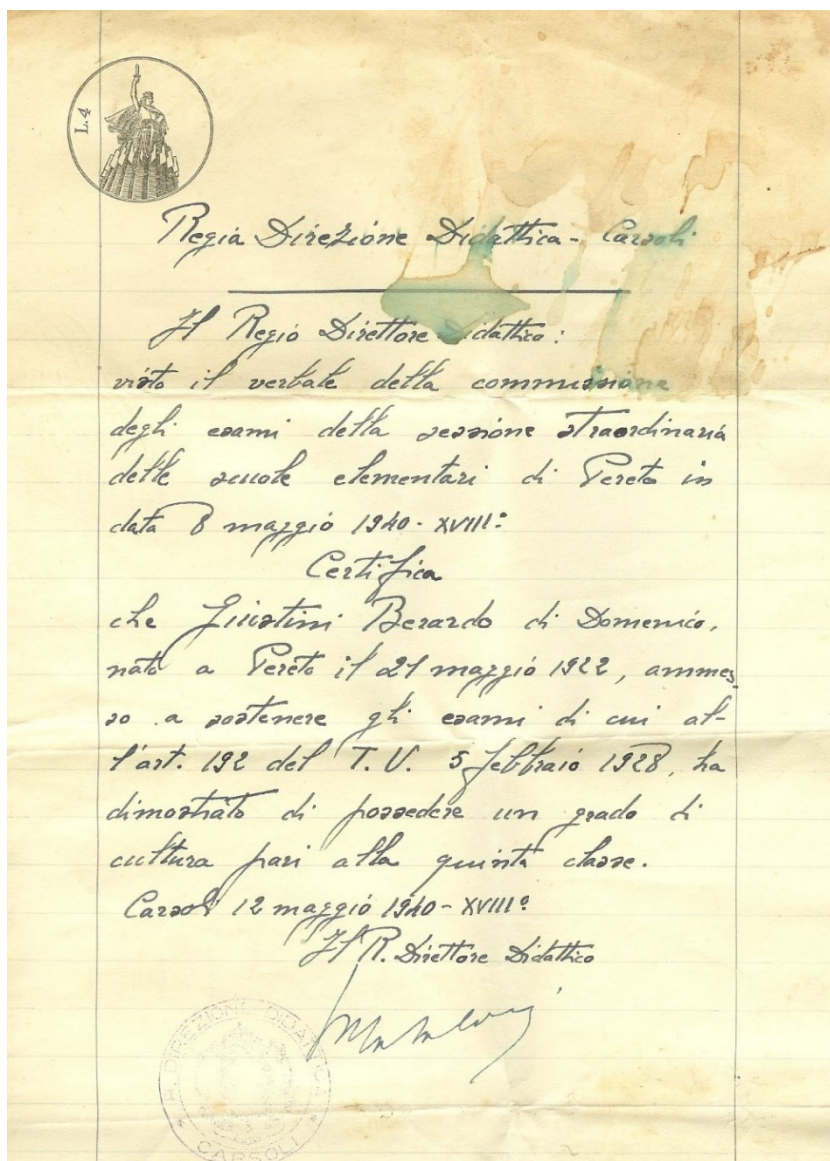 L.4
Regia Direzione Didattica - Carsoli
Il Regio Direttore Didattico:
visto il verbale della commissione
degli esami della sessione straordinaria
delle scuole elementari di Pereto in
data 8 maggio 1940 - XVIII:
Certifica
che Giustini Berardo di Domenico,
nato a Pereto il 21 maggio 1922, ammes-
so a sostenere gli esami di cui al-
l'art. 192 del T. U. 5 febbraio 1928, ha
dimostrato di possedere un grado di
cultura pari alla quinta classe.
Carsoli 12 maggio 1940 - XVIIIº
Il R. Direttore Didattico
R. DIREZIONE DIDATTICA
CARSOLI